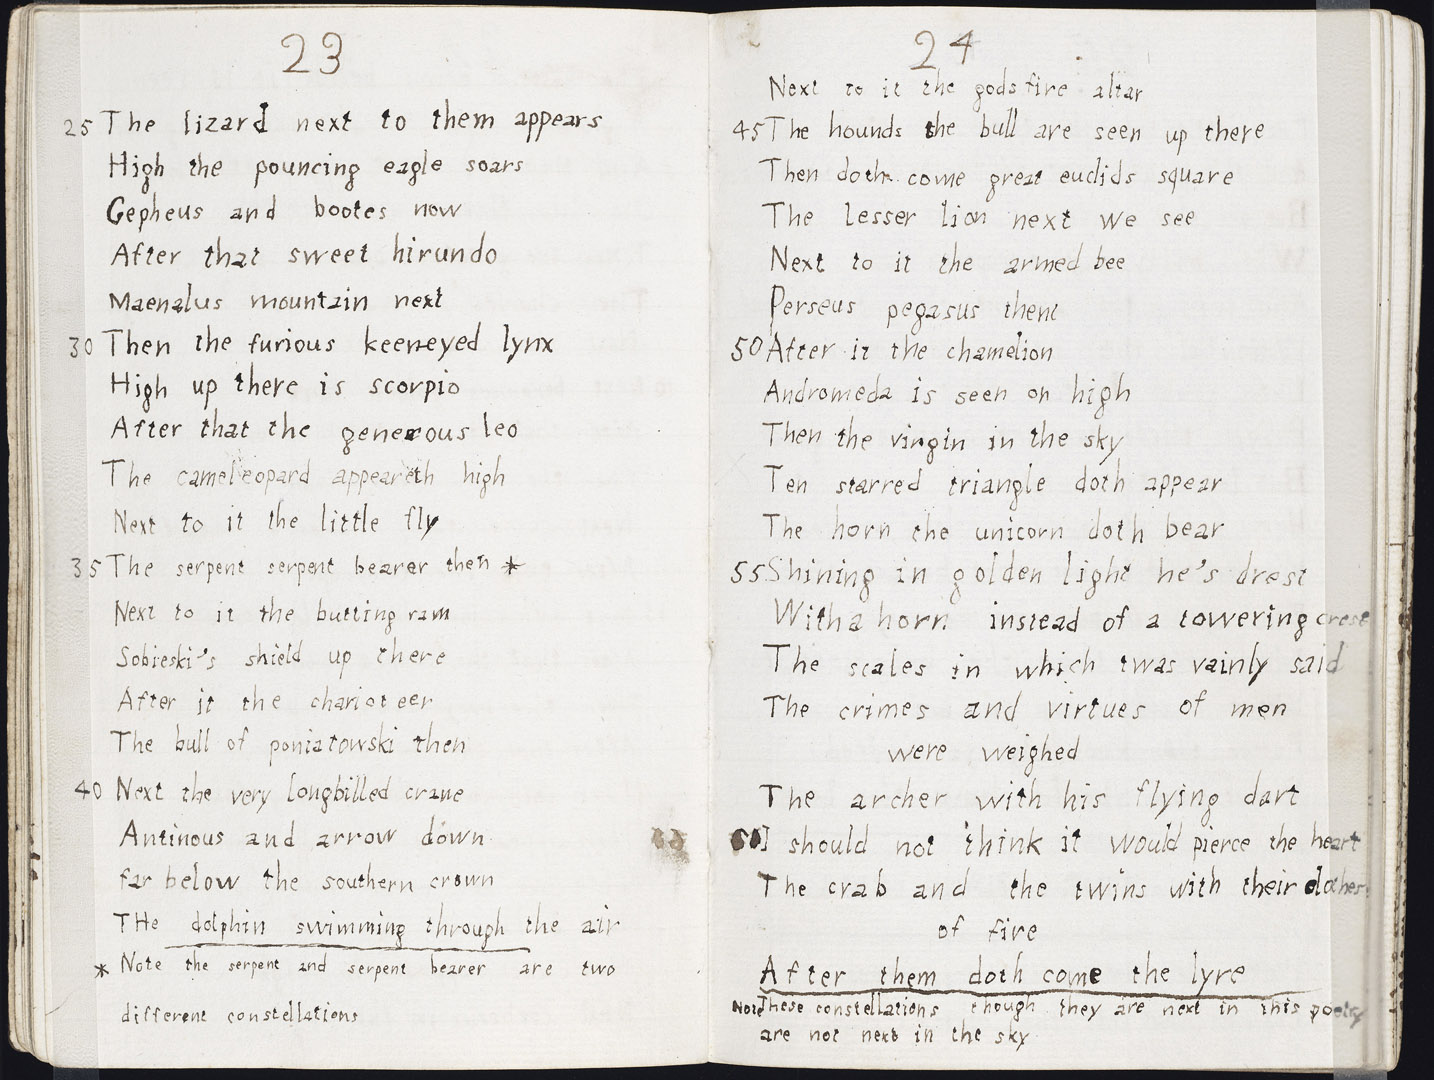 23
25 The lizard next to them appears
High the pouncing eagle soars
Gepheus and bootes now
After that sweet hirundo
Maenalus mountain next
30 Then the furious keeneyed lynx
High up there is scorpio
After that the generous leo
The cameleopard appeareth high
Next to it the little fly
35 The serpent serpent bearer then *
Next to it the butting ram
Sobieski's shield up there
After it the charioteer
The bull of poniatowski then
40 Next the very longbilled crane
Antinous and arrow down
far below the southern crown
THe dolphin swimming through the air
* Note the serpent and serpent bearer are two
different constellations
24
Next to it the gods fire altar
45 The hounds the bull are seen up there
Then doth come great euclids square
The lesser lion next we see
Next to it the armed bee
Perseus pegasus then
50 After it the chamelion
Andromeda is seen on high
Then the virgin in the sky
Ten starred triangle doth appear
The horn the unicorn doth bear
55 Shining in golden light he's drest
With a horn instead of a towering crest
The scales in which twas vainly said
The crimes and virtues of men
were weighed
The archer with his flying dart
60 I should not think it would pierce the heart
The crab and the twins with their clothes
of fire
After them doth come the lyre
Note These constellations though they are next in this poetry
are not next in the sky